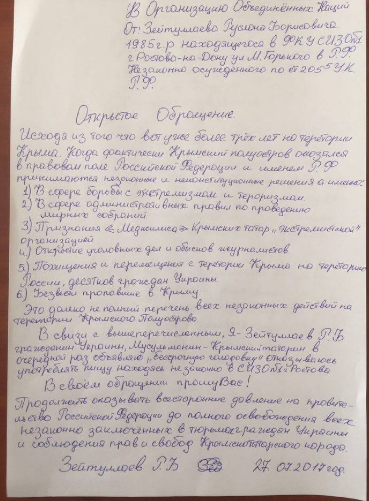 В Организацию Объединённых Наций
От: Зейтуллаева Руслана Борисовича
1985 г.р находящегося в ФКУ СИЗО
г. Ростова-на-Дону ул М. Горького в Р.Ф.
Незаконно осужденного по ст 205⁵ УК
Р.Ф.
Открытое Обращение.
Исходя из того что вот уже более трёх лет на територии
Крыма. Когда фактически Крымский полуостров оказался
в правовом поле Российской Федерации и именем Р.Ф
принимаются незаконные и неконституционные решения а именно:
1) В сфере борьбы с экстремизмом и тероризмом.
2) В сфере административных правил по проведению
мирных собраний
3) Признания Меджлиса Крымских татар „экстремистской"
организацией
4) Открытие уголовных дел и обысков журналистов
5) Похищения и перемещения с територии Крыма на територию
России, десятков граждан Украины
6) Безвести пропавшие в Крыму
Это далеко не полный перечень всех незаконных действий на
територии Крымского Полуострова
В связи с вышеперечисленным, Я - Зейтуллаев Р.Б
гражданин Украины, Мусульманин - Крымский татарин в
очередной раз объявляю „бессрочную голодовку" отказываюсь
употреблять пищу находясь незаконно в СИЗО г Ростова
В своём обращении прошу Вас!
Продолжать оказывать всестороннее давление на правите-
льство Российской Федерации до полного освобождения всех
незаконно заключённых в тюрьмах граждан Украины
и соблюдения прав и свобод Крымскотатарского народа.
Зейтуллаев Р.Б 27.07.2017 год.